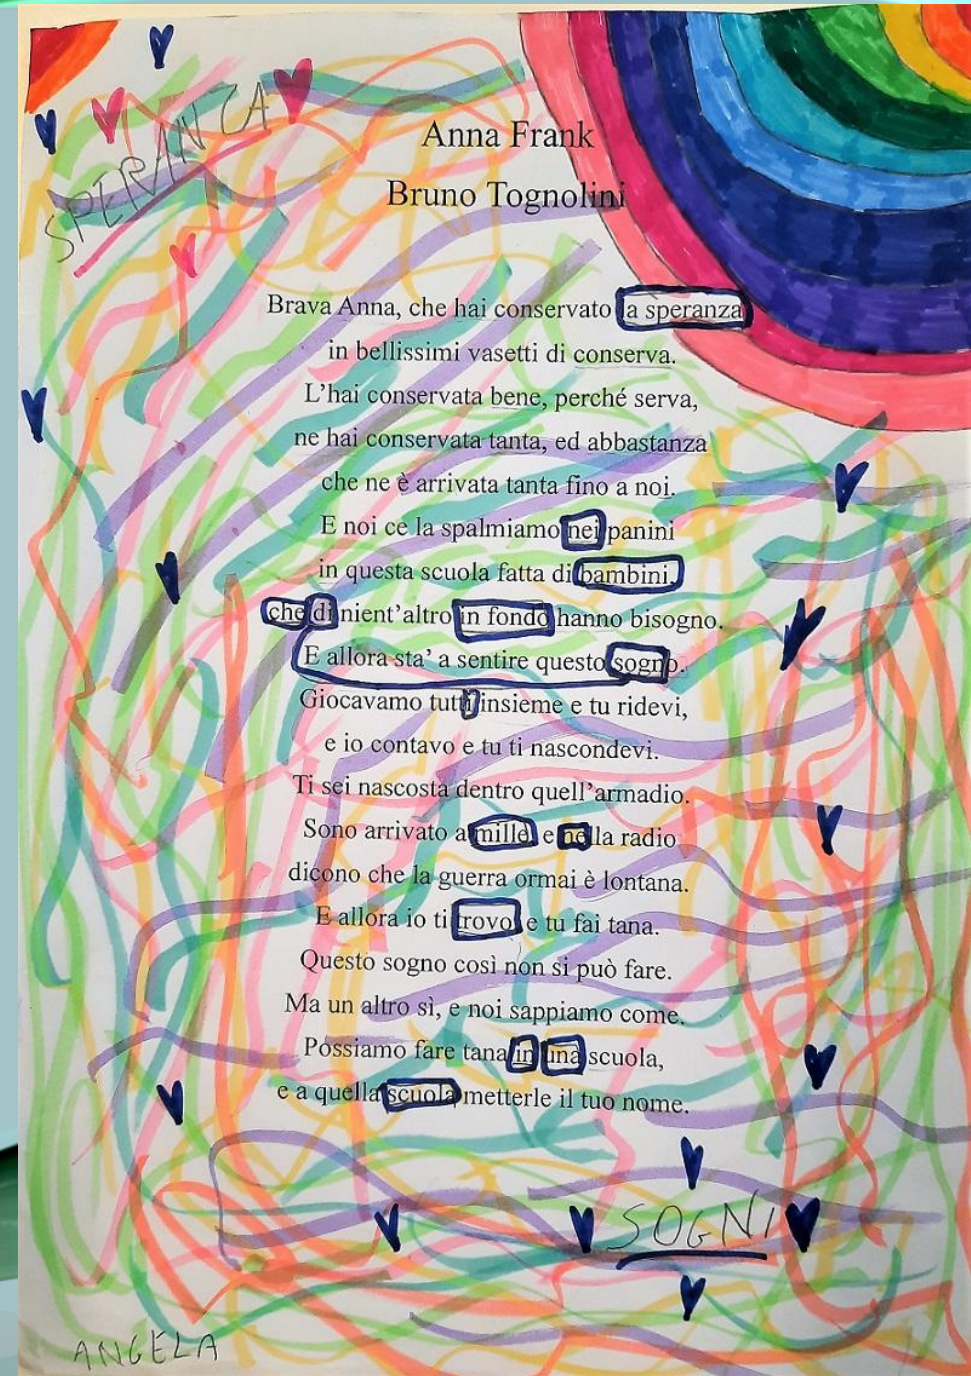 SPERANZA
Anna Frank
Bruno Tognolini
Brava Anna, che hai conservato la speranza
in bellissimi vasetti di conserva.
L'hai conservata bene, perché serva,
ne hai conservata tanta, ed abbastanza
che ne è arrivata tanta fino a noi.
E noi ce la spalmiamo nei panini
in questa scuola fatta di bambini,
che di nient'altro in fondo hanno bisogno.
E allora sta' a sentire questo sogno.
Giocavamo tutti insieme e tu ridevi,
e io contavo e tu ti nascondevi.
Ti sei nascosta dentro quell'armadio.
Sono arrivato a mille e nella radio
dicono che la guerra ormai è lontana.
E allora io ti trovo e tu fai tana.
Questo sogno così non si può fare.
Ma un altro sì, e noi sappiamo come.
Possiamo fare tana in una scuola,
e a quella scuola metterle il tuo nome.
SOGNI
ANGELA